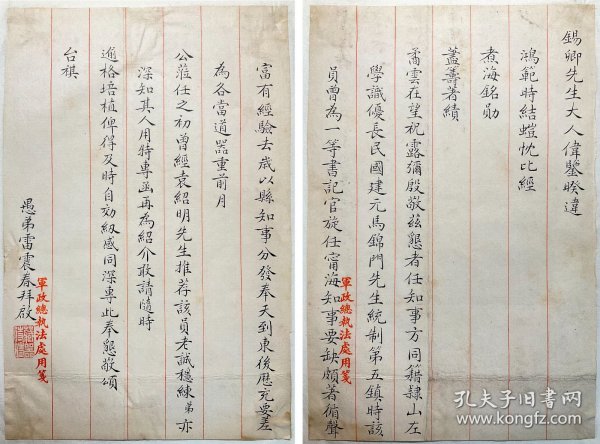 錫卿先生大人偉鑒睽違
鴻範時結螘忱比經
煮海銘勛
蓋籌著績
矞雲在望祝露彌殷敬茲懇者任知事方同籍隸山左
學識優長民國建元馬錦門先生統制第五鎮時該
員曾為一等書記官旋任甯海知事要缺頗著循聲
軍政總執法處用箋
富有經驗去歲以縣知事分發奉天到東後歷充要差
為各當道器重前月
公蒞任之初曾經袁紹明先生推荐該員老誠穩練弟亦
深知其人用特專函再為紹介敢請隨時
逾格培植俾得及時自効紉感同深專此奉懇敬頌
台祺
愚弟雷震春拜啟
軍政總執法處用箋
孔夫子旧书网
www.kongfz.com